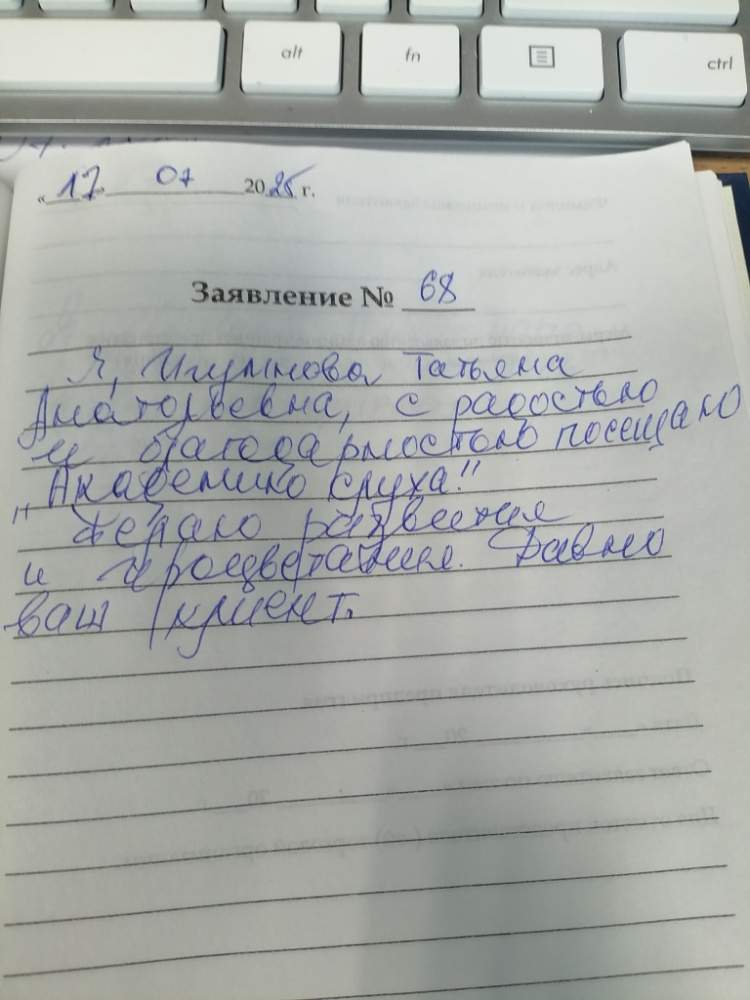 alt fn ctrl
« 17 » 07 2025 г.
Заявление № 68
Я, Игумнова Татьяна
Анатольевна, с радостью
и благодарностью посещаю
"Академию слуха"!
Желаю развития
и процветания. Давно
ваш клиент.